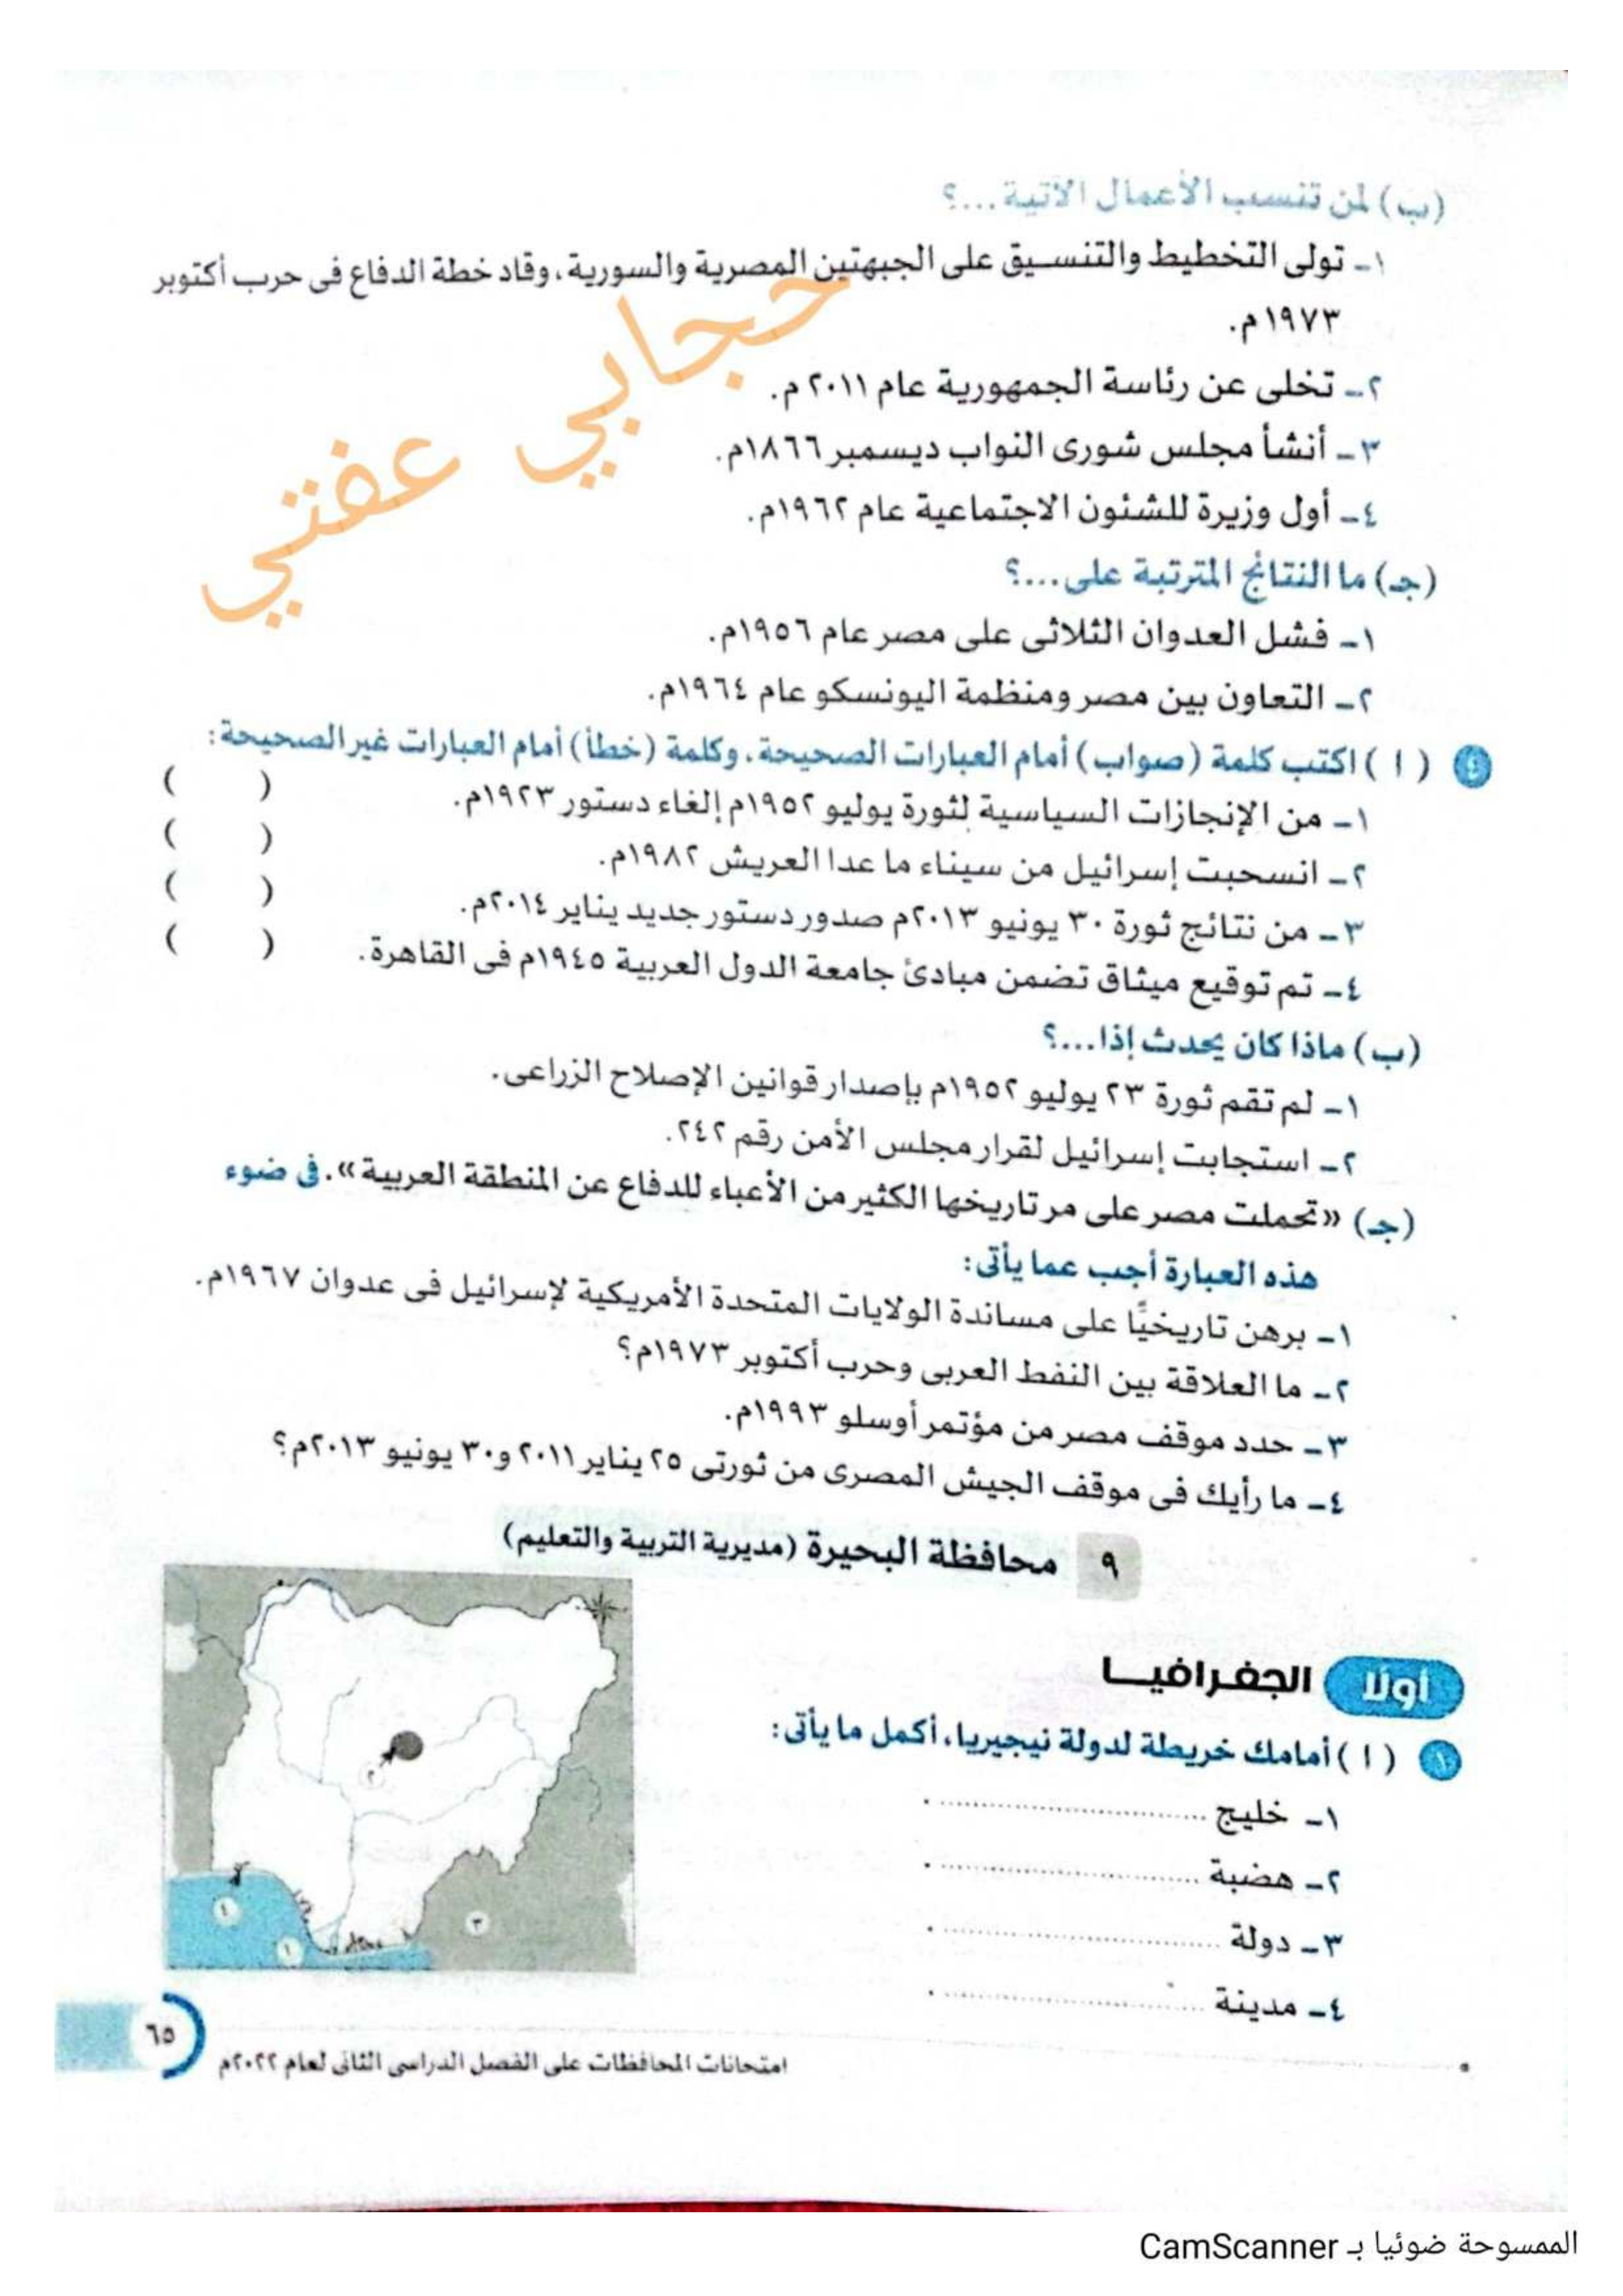 (ب) لمن تنسب الأعمال الآتية...؟
١- تولى التخطيط والتنسيق على الجبهتين المصرية والسورية، وقاد خطة الدفاع فى حرب أكتوبر
١٩٧٣م.
٢- تخلى عن رئاسة الجمهورية عام ٢٠١١م.
٣- أنشأ مجلس شورى النواب ديسمبر ١٨٦٦م.
٤- أول وزيرة للشئون الاجتماعية عام ١٩٦٢م.
حجابي عفتي
(جـ) ما النتائج المترتبة على...؟
١- فشل العدوان الثلاثى على مصر عام ١٩٥٦م.
٢- التعاون بين مصر ومنظمة اليونسكو عام ١٩٦٤م.
٤ (ا) اكتب كلمة (صواب) أمام العبارات الصحيحة، وكلمة (خطأ) أمام العبارات غير الصحيحة:
١- من الإنجازات السياسية لثورة يوليو ١٩٥٢م إلغاء دستور ١٩٢٣م. ( )
٢- انسحبت إسرائيل من سيناء ما عدا العريش ١٩٨٢م. ( )
٣- من نتائج ثورة ٣٠ يونيو ٢٠١٣م صدور دستور جديد يناير ٢٠١٤م. ( )
٤- تم توقيع ميثاق تضمن مبادئ جامعة الدول العربية ١٩٤٥م فى القاهرة. ( )
(ب) ماذا كان يحدث إذا...؟
١- لم تقم ثورة ٢٣ يوليو ١٩٥٢م بإصدار قوانين الإصلاح الزراعى.
٢- استجابت إسرائيل لقرار مجلس الأمن رقم ٢٤٢.
(جـ) «تحملت مصر على مر تاريخها الكثير من الأعباء للدفاع عن المنطقة العربية». فى ضوء
هذه العبارة أجب عما يأتى:
١- برهن تاريخيًا على مساندة الولايات المتحدة الأمريكية لإسرائيل فى عدوان ١٩٦٧م.
٢- ما العلاقة بين النفط العربى وحرب أكتوبر ١٩٧٣م؟
٣- حدد موقف مصر من مؤتمر أوسلو ١٩٩٣م.
٤- ما رأيك فى موقف الجيش المصرى من ثورتى ٢٥ يناير ٢٠١١ و٣٠ يونيو ٢٠١٣م؟
٩ محافظة البحيرة (مديرية التربية والتعليم)
أولًا الجغرافيـــا
١ (ا) أمامك خريطة لدولة نيجيريا، أكمل ما يأتى:
١- خليج ..............................
٢- هضبة ..............................
٣- دولة ..............................
٤- مدينة ..............................
٢
٤
٣
١
٦٥
امتحانات المحافظات على الفصل الدراسى الثانى لعام ٢٠٢٢م
الممسوحة ضوئيا بـ CamScanner